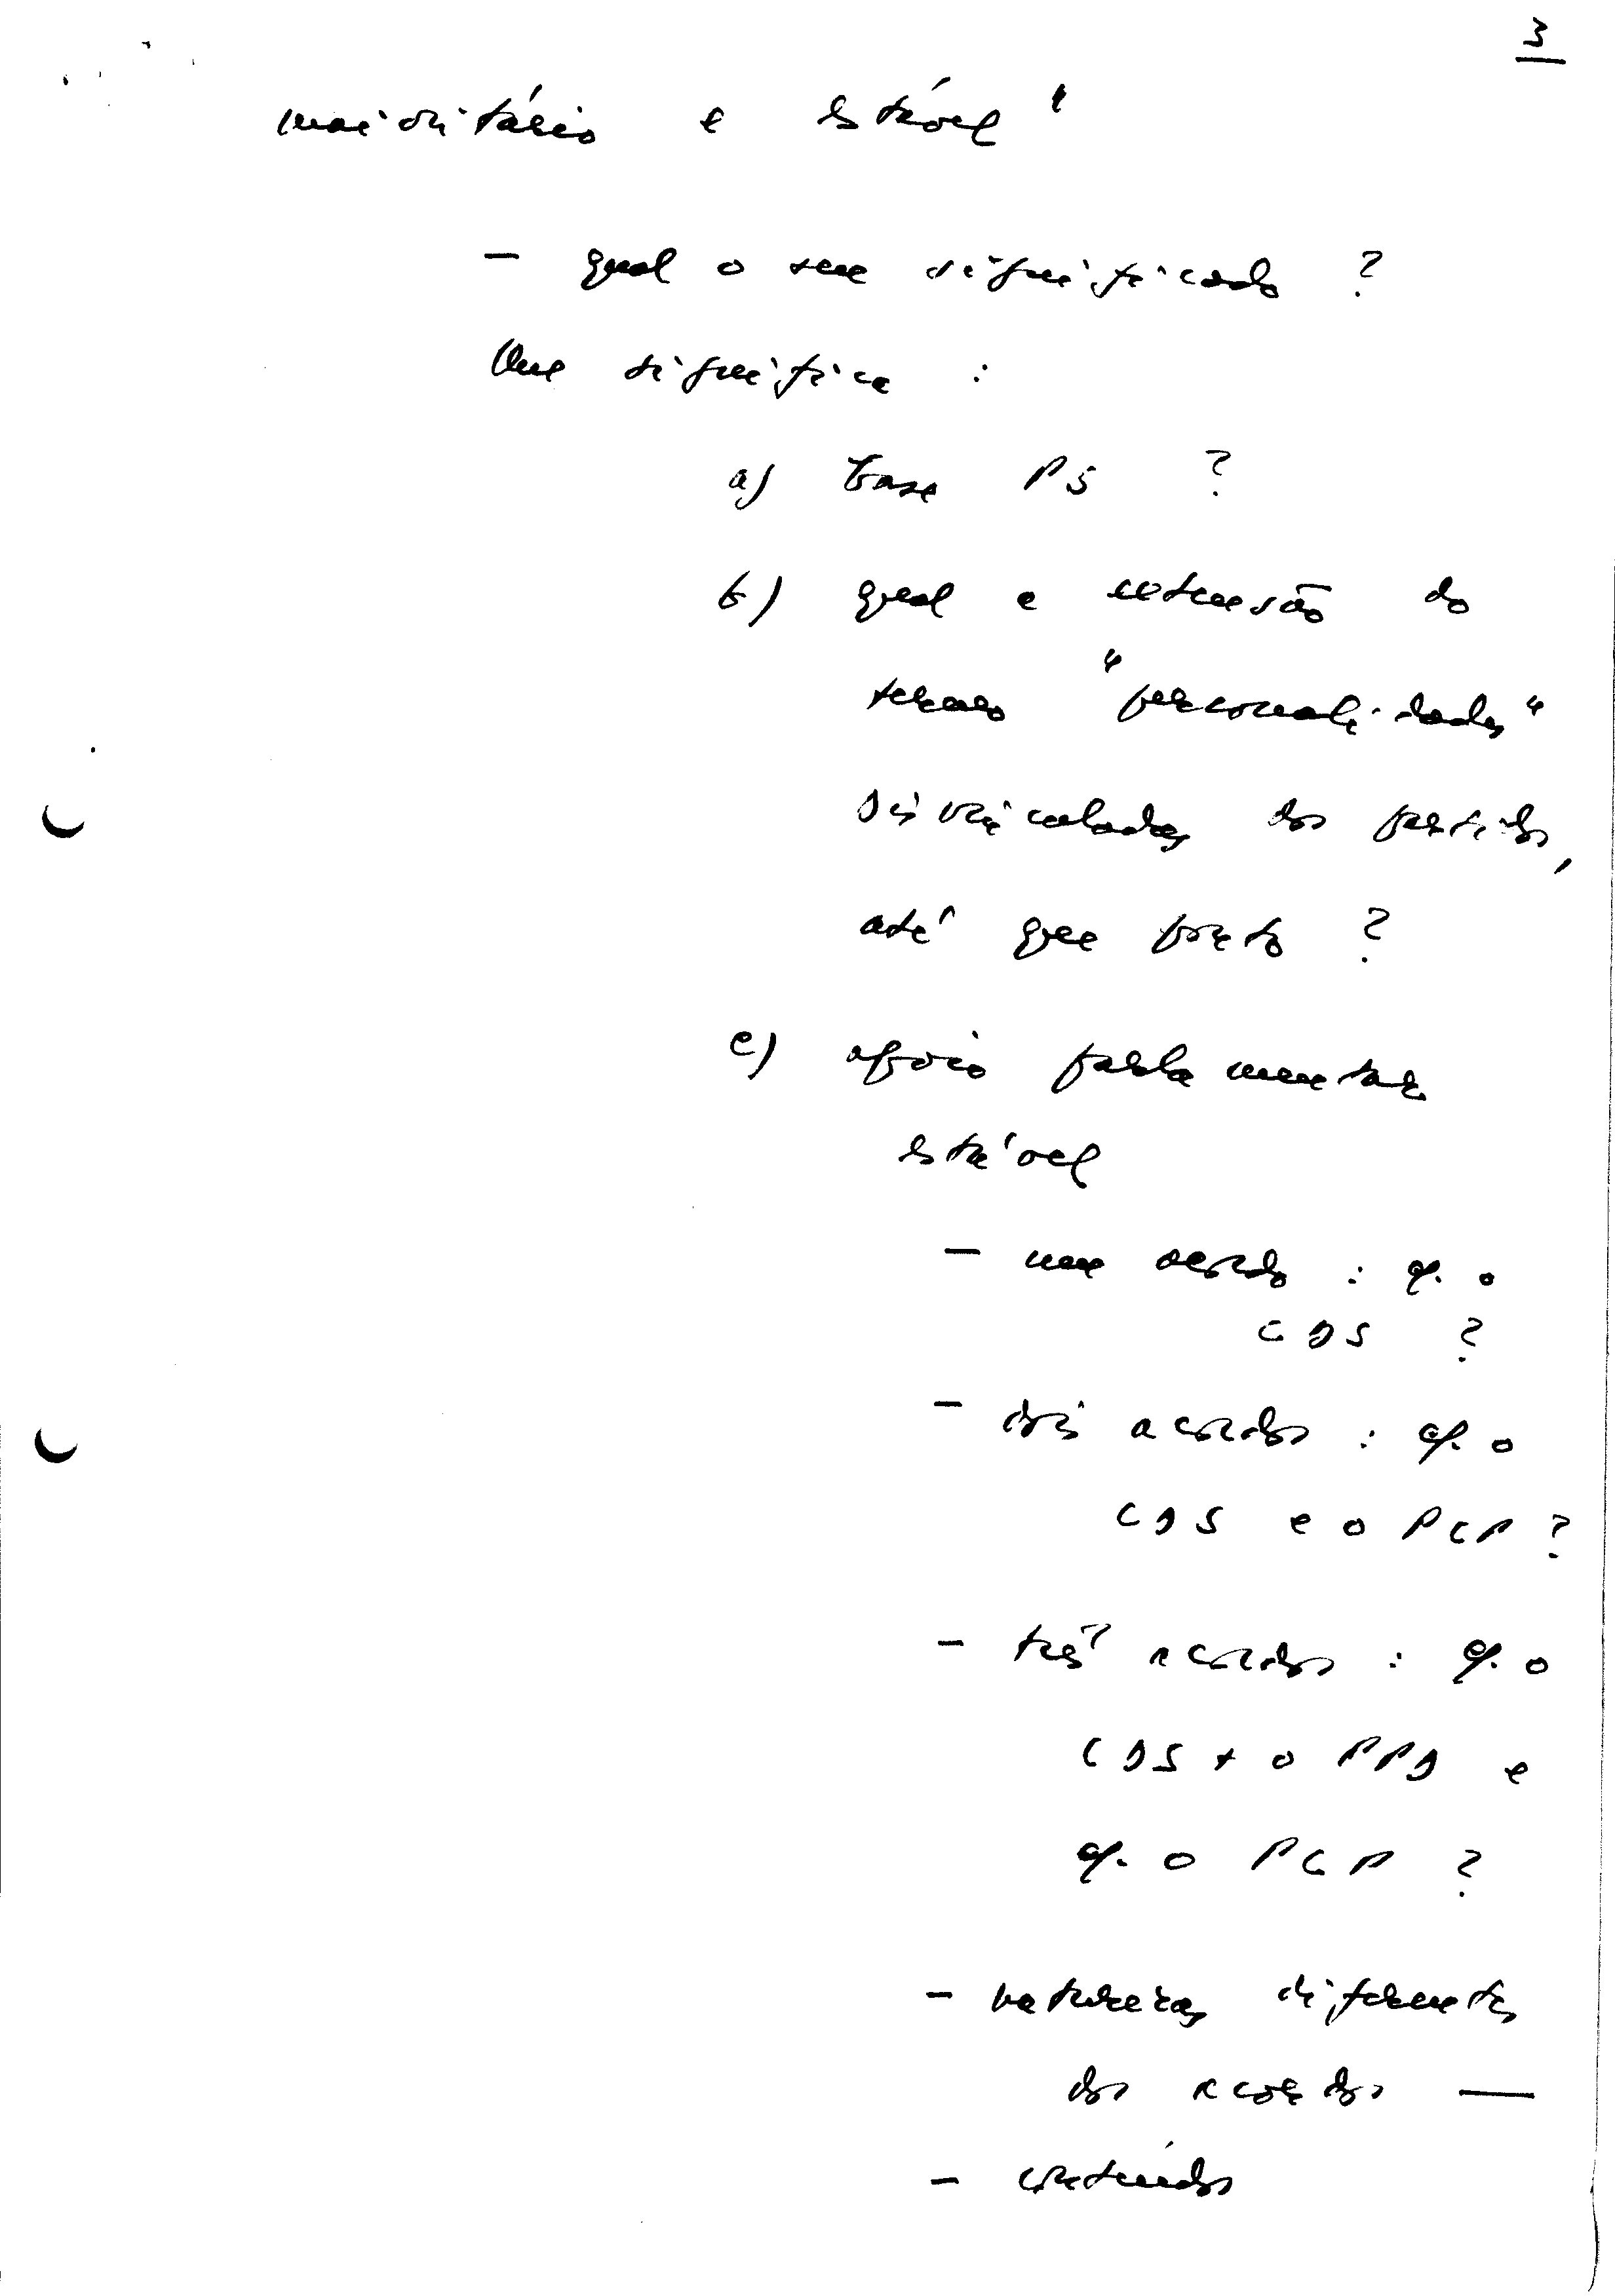 3
maioritário e estável"
— qual o seu significado ?
Que significa :
a) base PS ?
b) qual a extensão do
termo "personalidades"
desvinculadas dos partidos,
até que ponto ?
c) apoio parlamentar
estável
— um acordo : c/. o
CDS ?
— dois acordos : c/. o
CDS e o PCP ?
— três acordos : c/. o
CDS + o PPD e
c/. o PCP ?
— naturezas diferentes
dos acordos —
— conteúdos